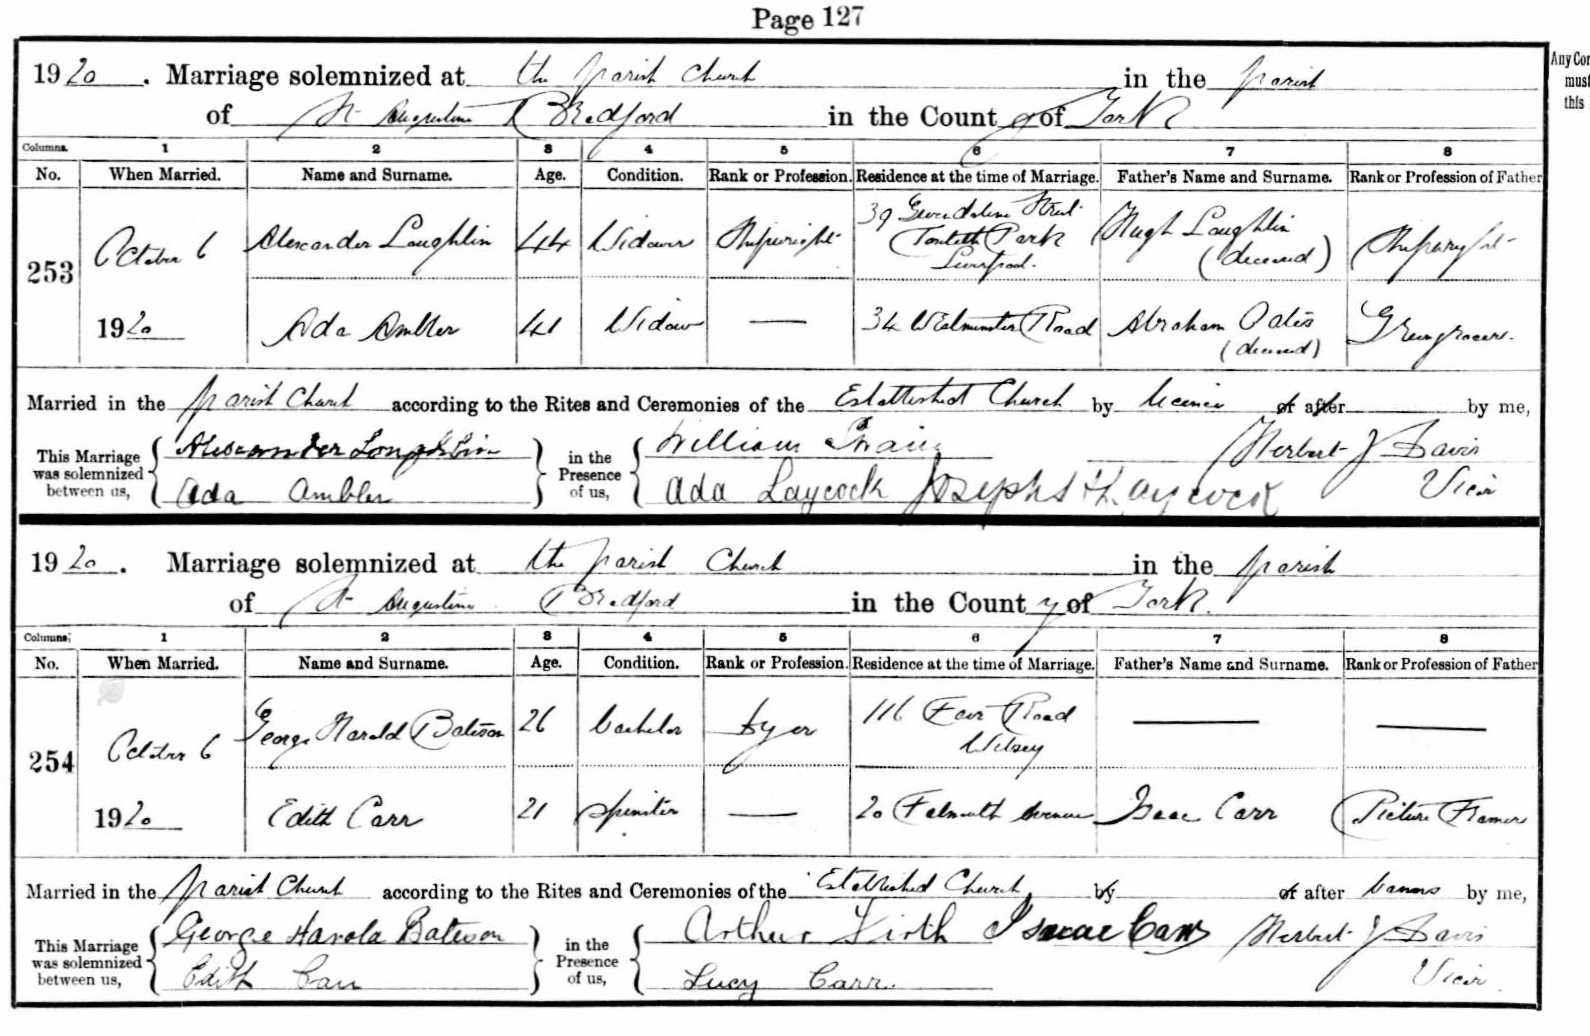 Page 127
Any Con
must
this
1920. Marriage solemnized at the parish Church in the parish
of St Augustine Bradford in the County of York
Columns. 1 2 3 4 5 6 7 8
No. When Married. Name and Surname. Age. Condition. Rank or Profession. Residence at the time of Marriage. Father's Name and Surname. Rank or Profession of Father
253 October 6 1920 Alexander Loughlin 44 Widower Shipwright 39 Gwendoline Street Toxteth Park Liverpool. Hugh Loughlin (deceased) Shipwright
Ada Ambler 41 Widow — 34 Westminster Road Abraham Oates (deceased) Greengrocer.
Married in the parish Church according to the Rites and Ceremonies of the Established Church by licence or after by me,
This Marriage was solemnized between us, Alexander Loughlin in the Presence of us, William Herbert J Davis
Ada Ambler Ada Laycock Joseph Laycock Vicar
1920. Marriage solemnized at the parish Church in the parish
of St Augustine Bradford in the County of York.
Columns. 1 2 3 4 5 6 7 8
No. When Married. Name and Surname. Age. Condition. Rank or Profession. Residence at the time of Marriage. Father's Name and Surname. Rank or Profession of Father
254 October 6 1920 George Harold Bateson 26 bachelor Dyer 116 Road Wibsey — —
Edith Carr 21 Spinster — 20 Falmouth Avenue Isaac Carr Picture Framer
Married in the parish Church according to the Rites and Ceremonies of the Established Church by or after banns by me,
This Marriage was solemnized between us, George Harold Bateson in the Presence of us, Arthur Firth Isaac Carr Herbert J Davis
Edith Carr Lucy Carr. Vicar.